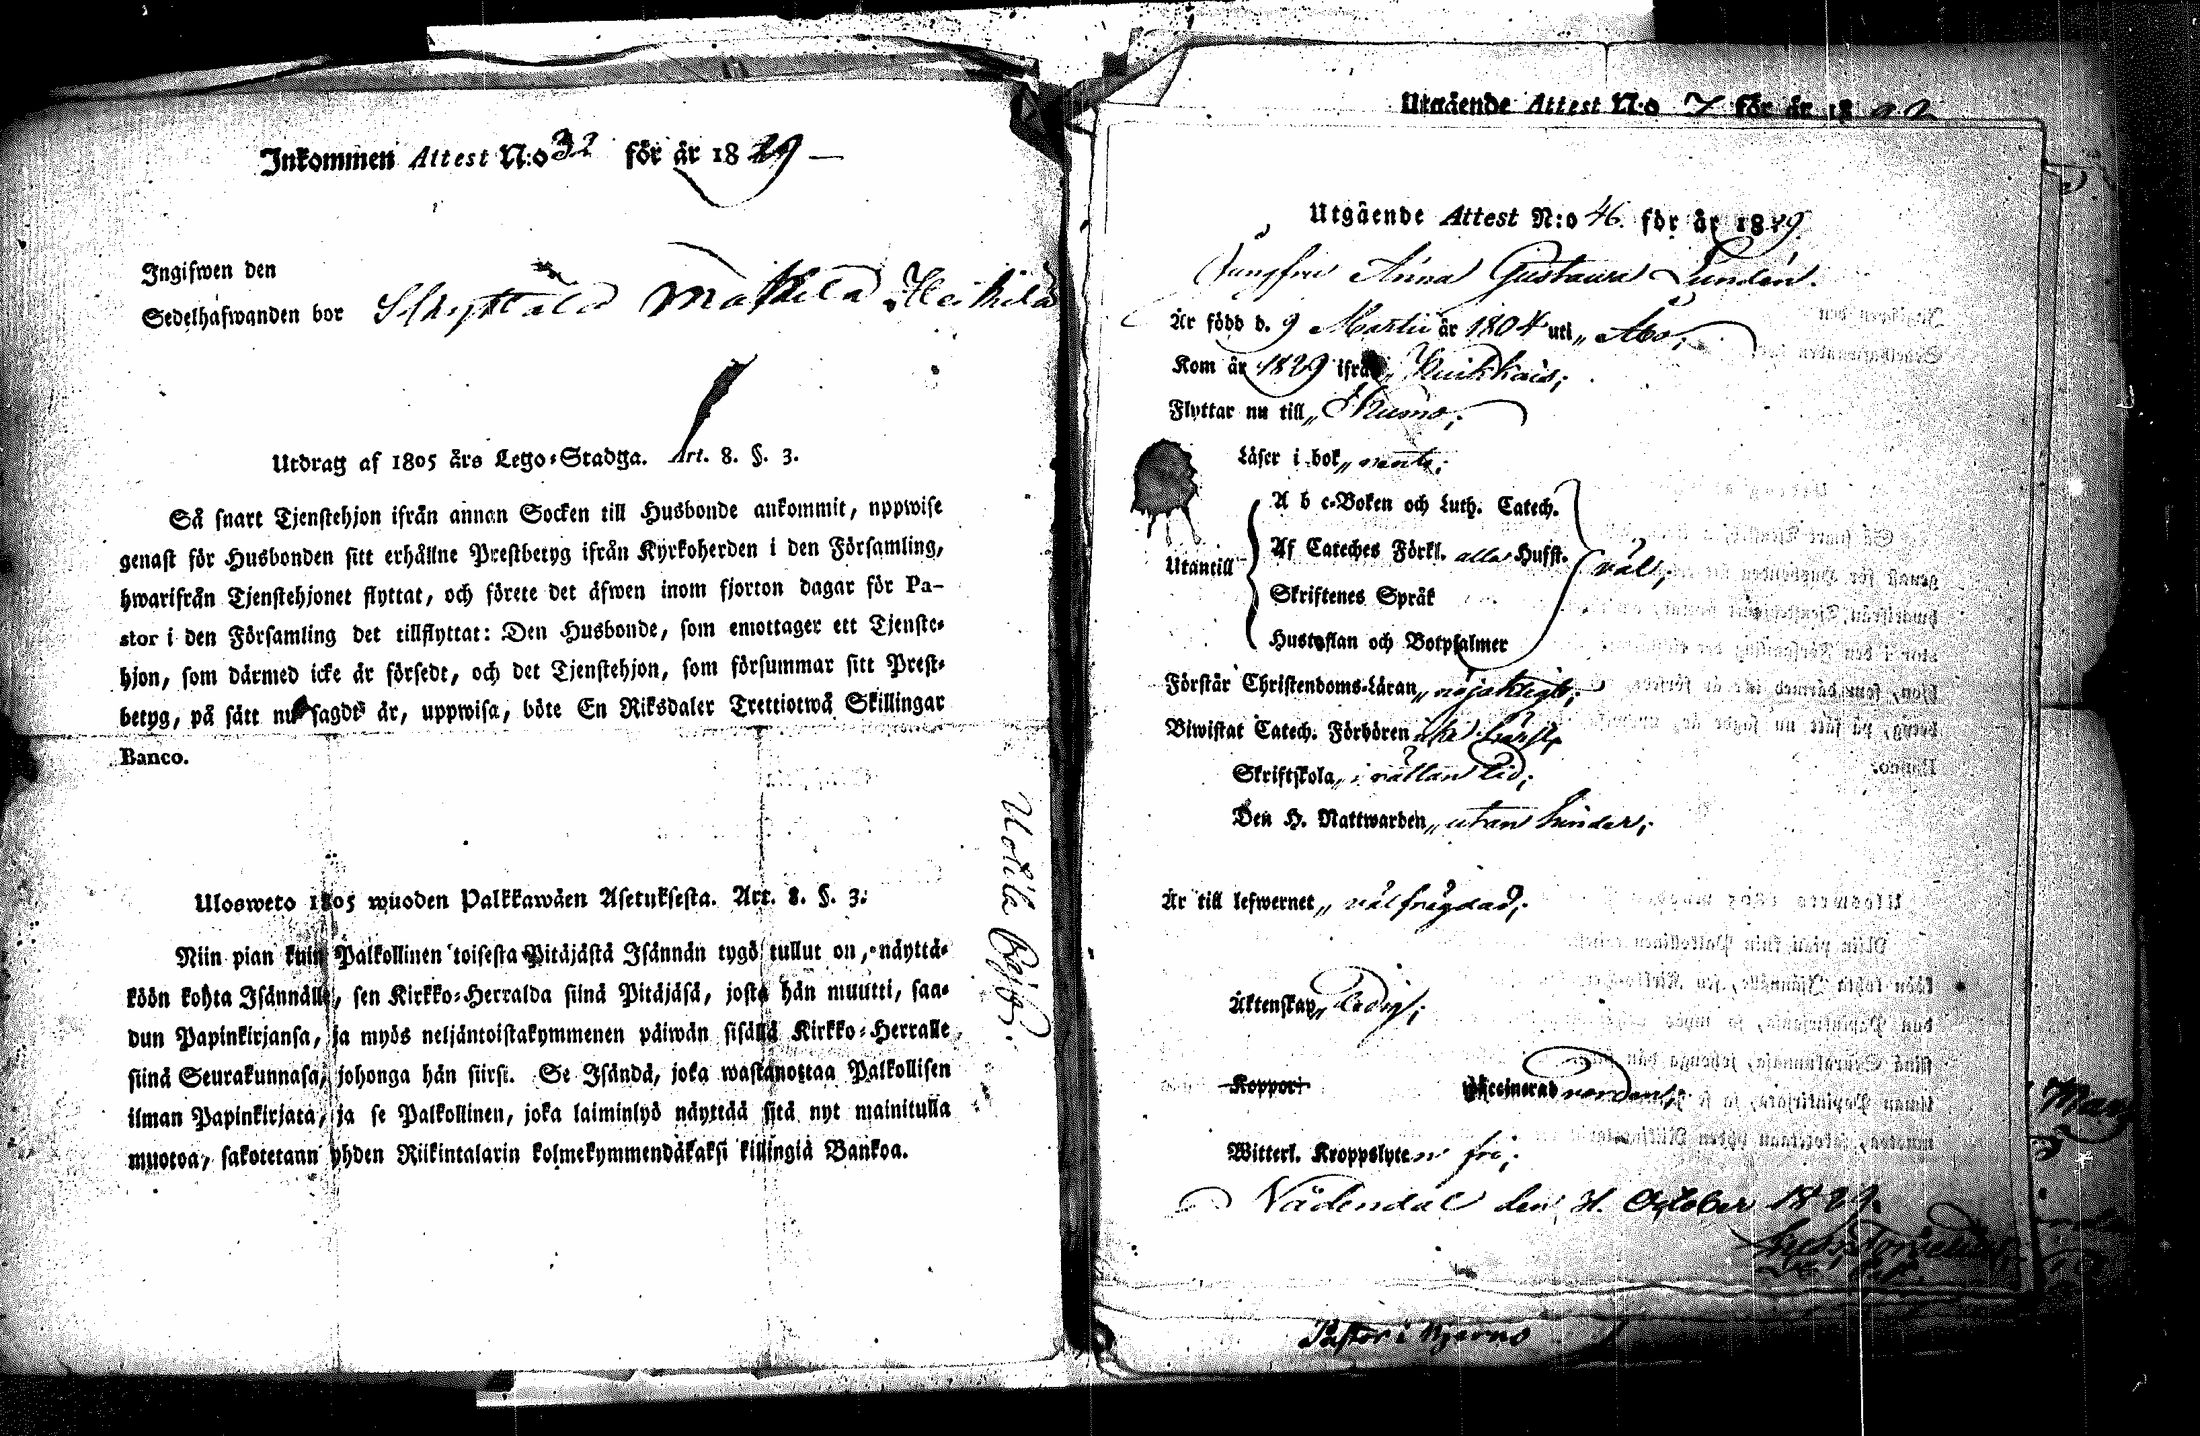 Inkommen Attest N:o 32 för år 1829
Ingifwen den
Sedelhafwanden bor
Utdrag af 1805 års Lego-Stadga. Art. 8. §. 3.
Så snart Tjenstehjon ifrån annan Socken till Husbonde ankommit, uppwise
genast för Husbonden sitt erhållne Prestbetyg ifrån Kyrkoherden i den Församling,
hwarifrån Tjenstehjonet flyttat, och förete det äfwen inom fjorton dagar för Pa-
stor i den Församling det tillflyttat: Den Husbonde, som emottager ett Tjenste-
hjon, som därmed icke är försedt, och det Tjenstehjon, som försummar sitt Prest-
betyg, på sätt nu sagdt är, uppwisa, böte En Riksdaler Trettiotwå Skillingar
Banco.
Ulosweto 1805 wuoden Palkkawäen Asetuksesta. Art. 8. §. 3:
Niin pian kuin Palkollinen toisesta Pitäjästä Isännän tygö tullut on, näyttä-
köön kohta Isännälle, sen Kirkko-Herralda siinä Pitäjäsä, josta hän muutti, saa-
dun Papinkirjansa, ja myös neljäntoistakymmenen päiwän sisällä Kirkko-Herralle
siinä Seurakunnasa, johonga hän siirsi. Se Isändä, joka wastanottaa Palkollisen
ilman Papinkirjata, ja se Palkollinen, joka laiminlyö näyttää sitä nyt mainitulla
muotoa, sakotetann yhden Riikintalarin kolmekymmendäkaksi killingiä Bankoa.
Utgående Attest N:o 7 för år 18
Utgående Attest N:o 46. för år 1829.
Jungfru Anna Gustava Lundén.
Är född d. 9 Martii år 1804 uti Åbo;
Kom år 1829 ifrån
Flyttar nu till
Läser i bok
A b c-Boken och Luth. Catech.
Af Cateches Förkl. alla Husst.
Utantill
väl;
Skriftenes Språk
Hustaflan och Botpsalmer
Förstår Christendoms-Läran nöjaktigt;
Biwistat Catech. Förhören
Skriftskola i rättan tid;
Den H. Nattwarden utan hinder;
Är till lefwernet välfrägdad;
Äktenskap ledig;
Koppor
Vaccinerad
Witterl. Kroppslyten fri;
Nådendal den 31. October 1829.
Pastor i Bjerno